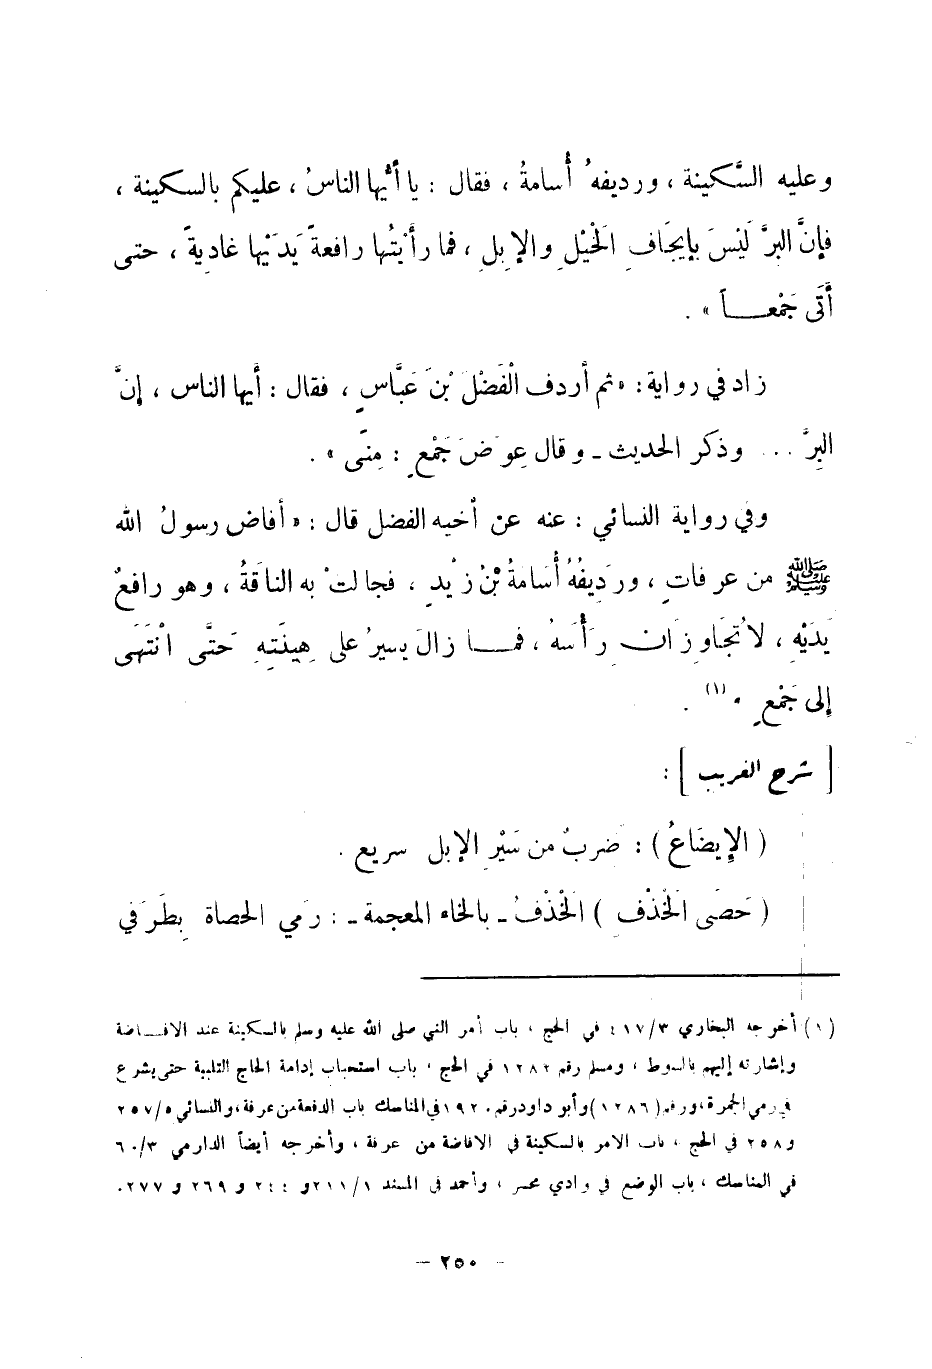 وعليه السَّكينة ، ورديفهُ أُسامةُ ، فقال : يا أيُّها الناسُ ، عليكم بالسكينة ،
فإنَّ البرَّ لَيْسَ بإيجَافِ الْخَيْلِ والإبِلِ ، فما رأَيْتُها رافعةً يَدَيْها غاديةً ، حتى
أتَى جَمْعـــاً » .
زاد في رواية : « ثم أردف الْفَضْلَ بْنَ عَبَّاسٍ ، فقال : أيها الناس ، إنَّ
البِرَّ ... وذكر الحديث ـ وقال عِوَضَ جَمْعٍ : مِنًى » .
وفي رواية النسائي : عنه عن أخيه الفضل قال : « أفاض رسولُ الله
ﷺ من عرفاتٍ ، ورَدِيفُهُ أُسامةُ بْنُ زَيْدٍ ، فجالتْ به الناقةُ ، وهو رافعٌ
يَدَيْهِ ، لا تُجَاوِزَانِ رَأْسَهُ ، فمـــا زالَ يسيرُ على هِينَتِهِ حَتَّى انْتَهَى
إلى جَمْعٍ » (١) .
[ شرح الغريب ] :
( الإيضَاعُ ) : ضَربٌ من سَيْرِ الإبل سريع .
( حَصَى الْخَذْفِ ) الْخَذْفُ ـ بالخاء المعجمة ـ : رَمي الحصاة بِطَرَفي
(١) أخرجه البخاري ٤١٧/٣ في الحج ، باب أمر النبي صلى الله عليه وسلم بالسكينة عند الافـــاضة
وإشارته إليهم بالسوط ، ومسلم رقم ١٢٨٢ في الحج ، باب استحباب إدامة الحاج التلبية حتى يشرع
في رمي الجمرة ، ورقم ( ١٢٨٦ ) وأبو داود رقم ١٩٢٠ في المناسك باب الدفعة من عرفة ، والنسائي ٢٥٧/٥
و ٢٥٨ في الحج ، باب الامر بالسكينة في الافاضة من عرفة ، وأخرجه أيضاً الدارمي ٦٠/٣
في المناسك ، باب الوضع في وادي محسر ، وأحمد في المسند ٢١١/١ و ٢٤٤ و ٢٦٩ و ٢٧٧ .
ـ ٢٥٠ ـ